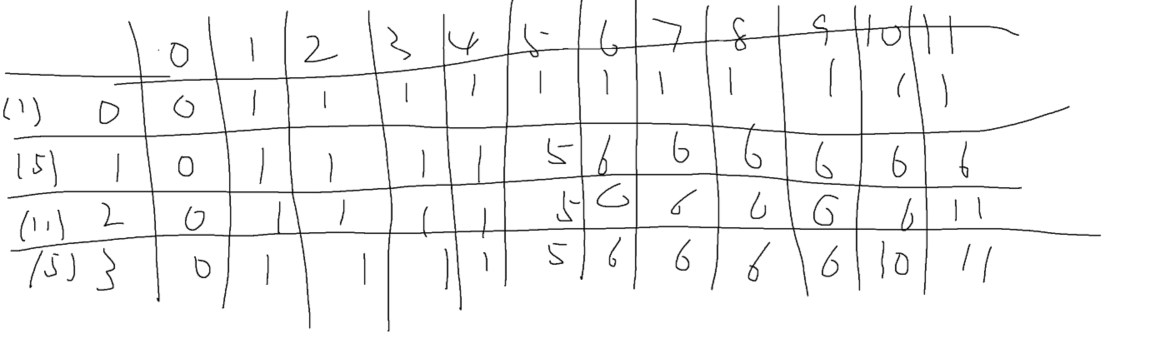 0 1 2 3 4 5 6 7 8 9 10 11
(1) 0 0 1 1 1 1 1 1 1 1 1 1 1
(5) 1 0 1 1 1 1 5 6 6 6 6 6 6
(11) 2 0 1 1 1 1 5 6 6 6 6 6 11
(5) 3 0 1 1 1 1 5 6 6 6 6 10 11